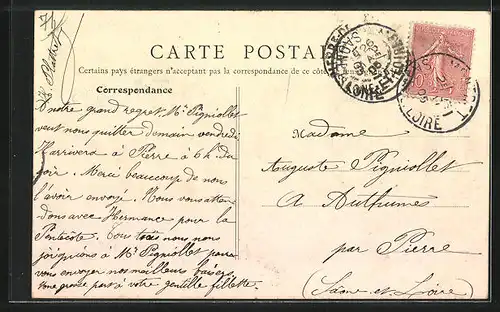 CARTE POSTALE
Certains pays étrangers n'acceptant pas la correspondance de ce côté
Correspondance
A notre grand regret, Mr Pigniollet
veut nous quitter demain vendredi
Il arrivera à Pierre à 6 h. du
soir. Merci beaucoup de nous
l'avoir envoyé. Nous vous atten
dons avec Hermance pour la
Pentecôte. Tous trois nous nous
joignions à Mr Pigniollet pour
vous envoyer nos meilleurs baisers
Une grosse part à votre gentille fillette.
Madame
Auguste Pigniollet
A Authumes
par Pierre
(Saône et Loire)
LOIRE
LOIRE